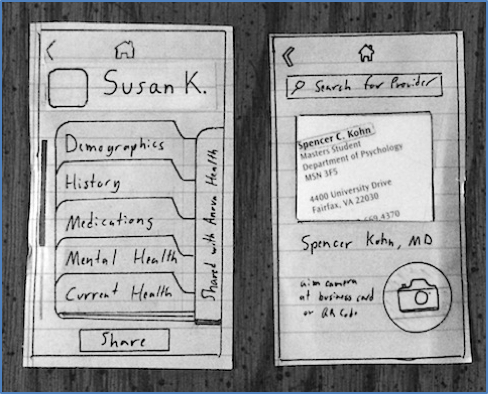 Susan K.
Demographics
History
Medications
Mental Health
Current Health
Shared with Anrva Health
Share
Search for Provider
Spencer C. Kohn
Masters Student
Department of Psychology
MSN 3F5
4400 University Drive
Fairfax, VA 22030
669.4370
Spencer Kohn, MD
aim camera
at business card
or QR Code